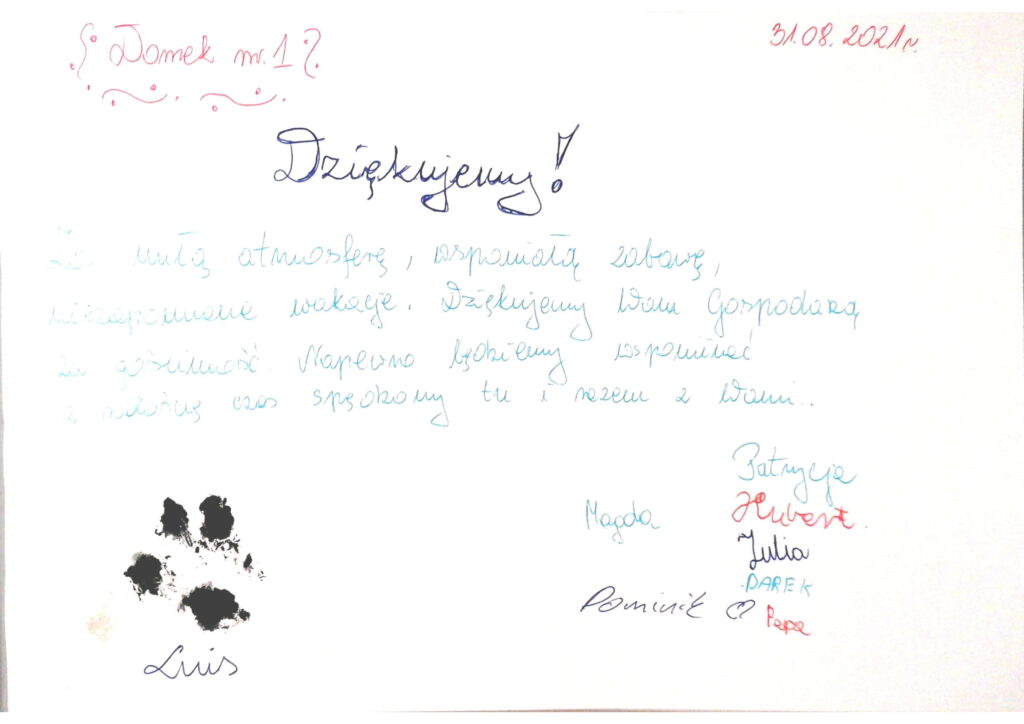 Domek nr. 1
31.08.2021r.
Dziękujemy!
Za miłą atmosferę, wspaniałą zabawę,
niezapomniane wakacje. Dziękujemy Wam Gospodarzą
za gościnność. Napewno będziemy wspominać
z radością czas spędzony tu i razem z Wami..
Patrycja
Magda Hubert.
Julia
DAREK
Dominik ♡
Luis